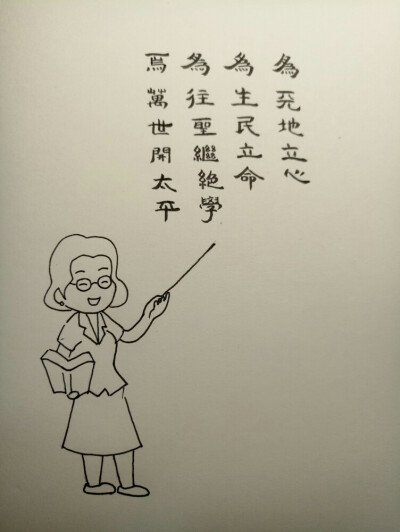 為天地立心
為生民立命
為往聖繼絶學
為萬世開太平